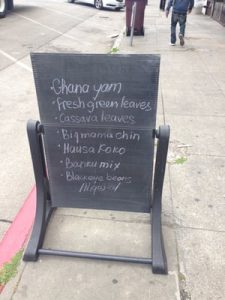 • Ghana yam
• Fresh green leaves
• Cassava leaves
• Bigmama chin
• Hausa Koko
• Banku mix
• Blackeye beans